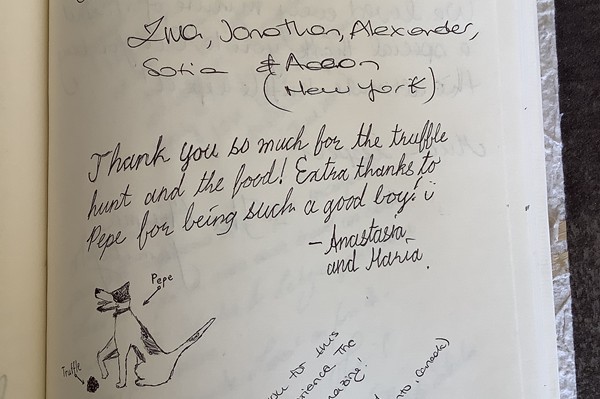 Jonathan, Alexander,
Sofia & Aaron
(New York)
Thank you so much for the truffle
hunt and the food! Extra thanks to
Pepe for being such a good boy! ü
- Anastasia
and Maria.
Pepe
Truffle
you for this
experience The
amazing!
Canada)